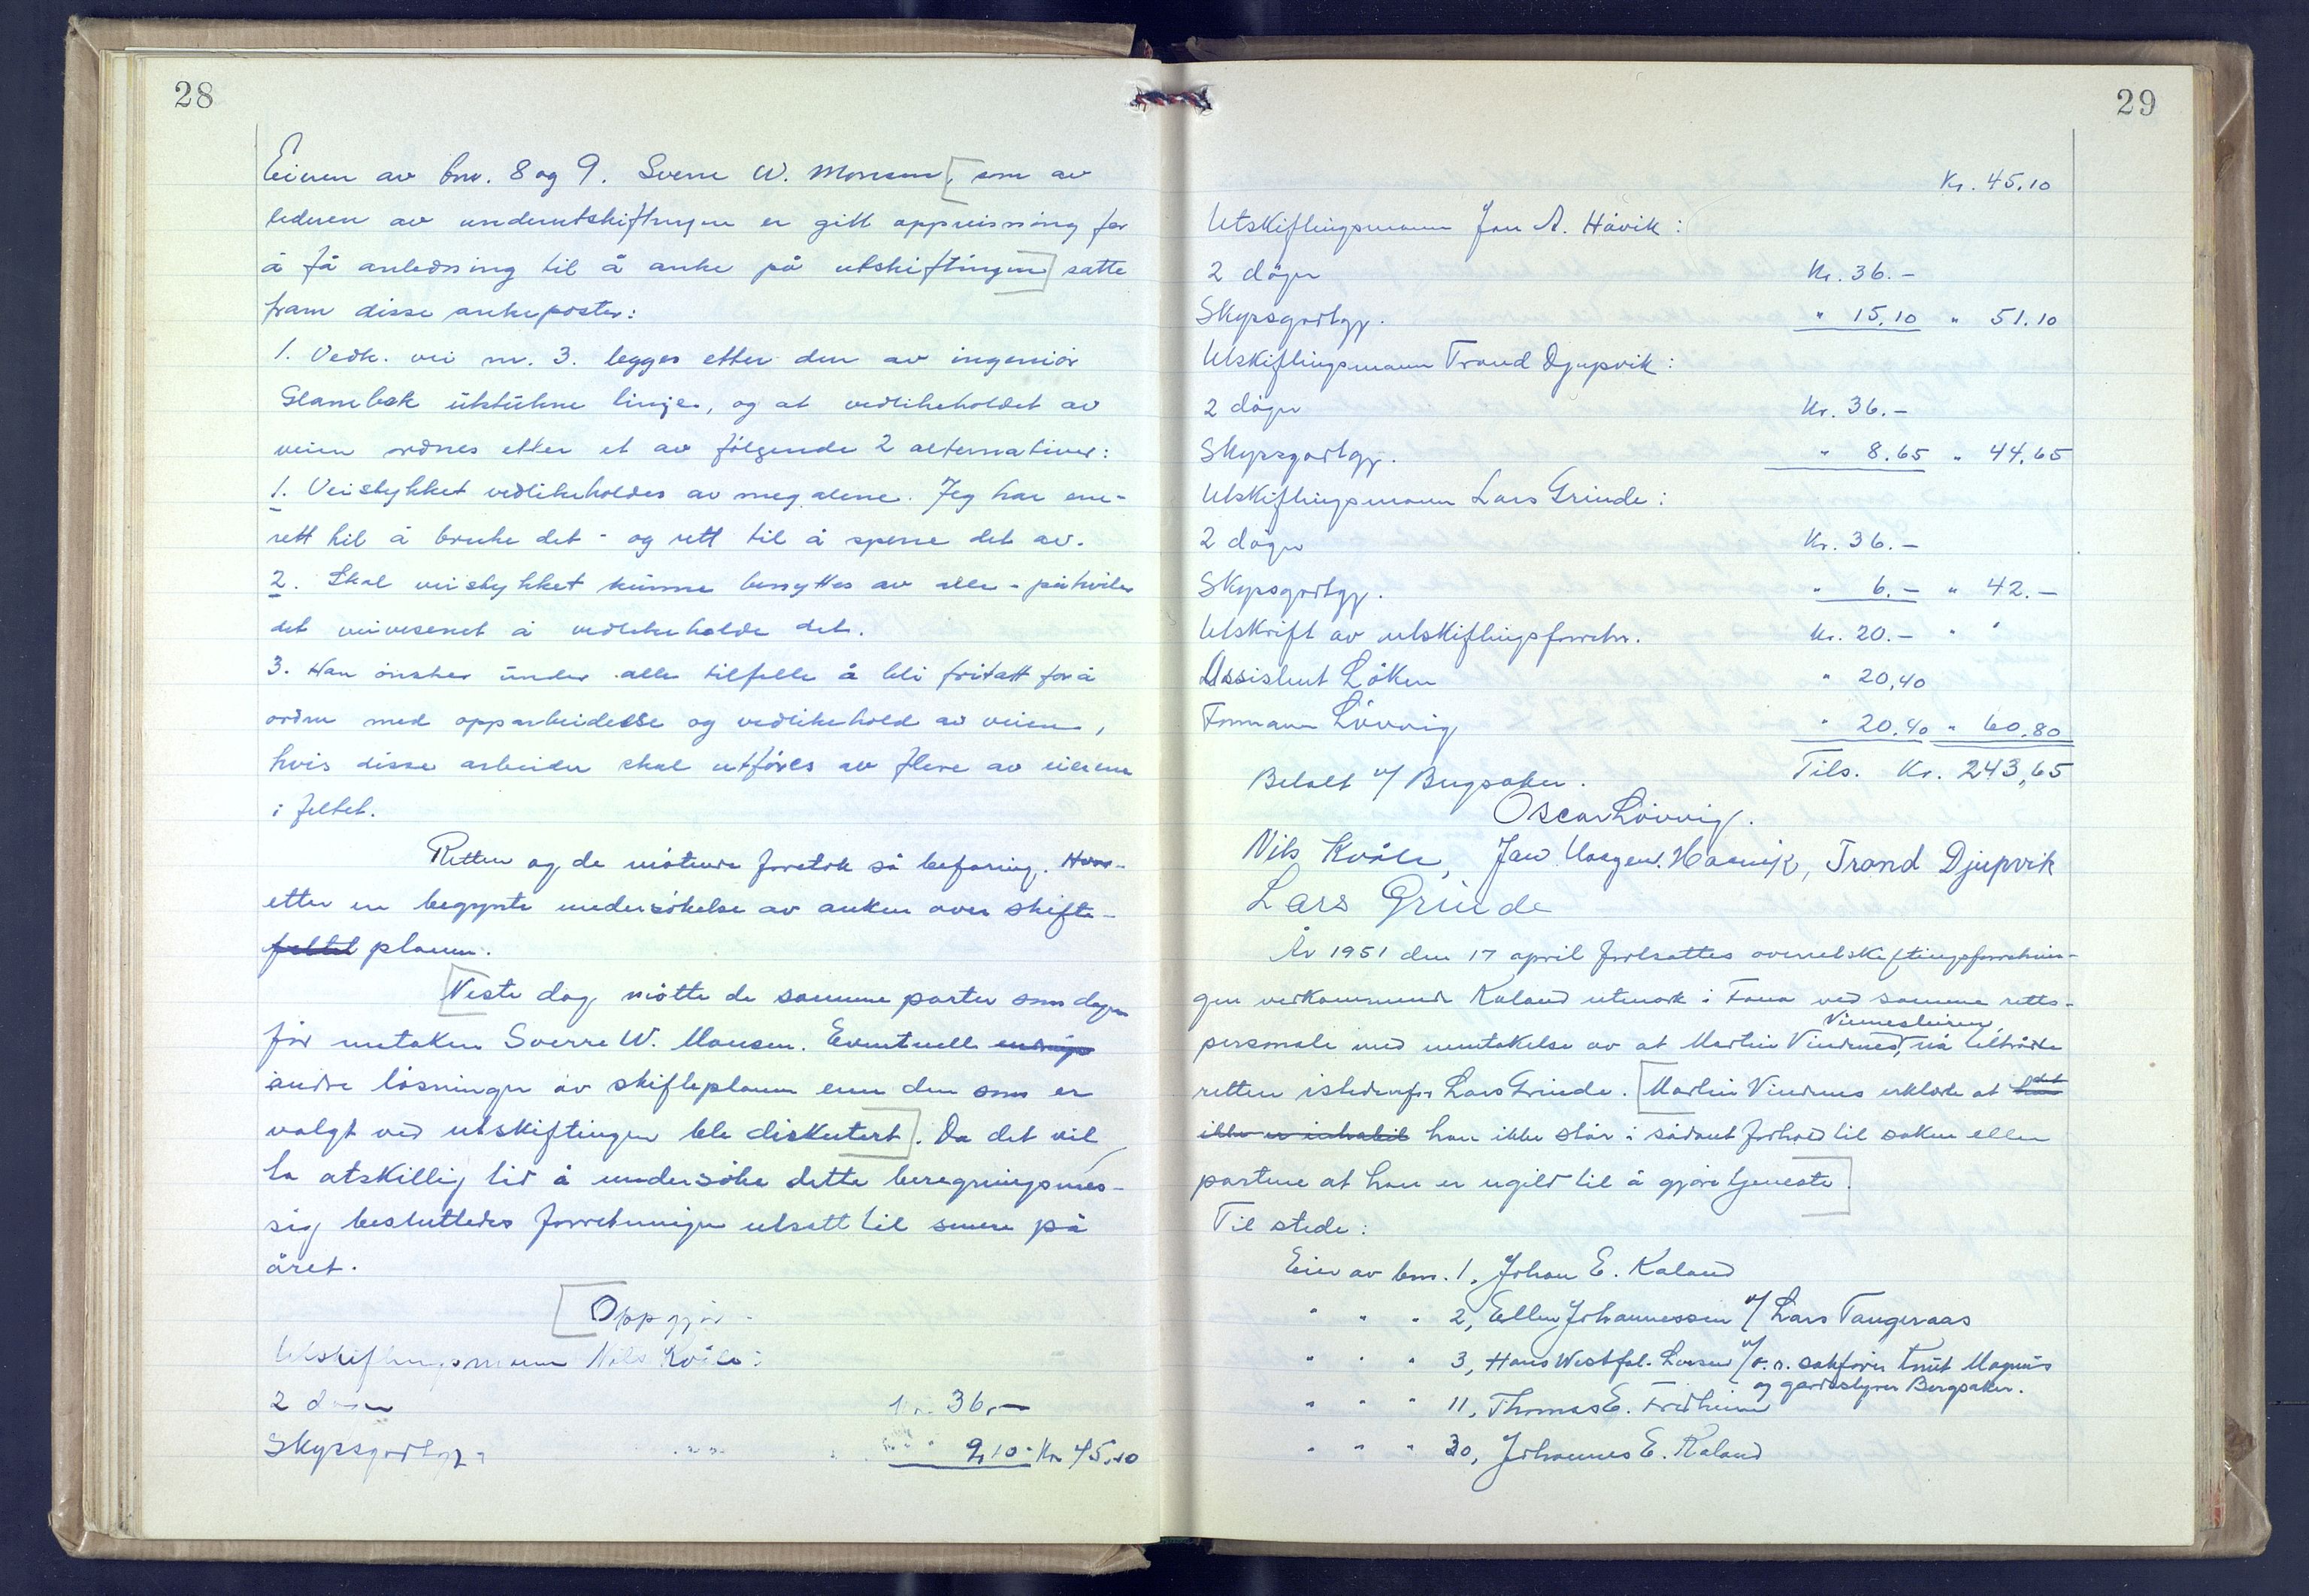 28
Eieren av bnr. 8 og 9. Sverre W. Monsen [, som av
lederen av underutskiftingen er gitt oppreisning for
å få anledning til å anke på utskiftingen] satte
fram disse ankeposter:
1. Vedk. vei nr. 3. legges etter den av ingeniör
Glambek utstukne linje, og at vedlikeholdet av
veien ordnes etter et av fölgende 2 alternativer:
1. Veistykket vedlikeholdes av meg alene. Jeg har ene-
rett til å bruke det - og rett til å sperre det av.
2. Skal veistykket kunne benyttes av alle - påhviler
det veivesenet å vedlikeholde det.
3. Han önsker under alle tilfelle å bli fritatt for å
ordne med opparbeidelse og vedlikehold av veien,
hvis disse arbeider skal utföres av flere av eierne
i feltet.
Retten og de mötende foretok så befaring. Hvor-
etter en begynte undersökelse av anken over skifte-
feltet planen.
[Neste dag mötte de samme parter som dagen
för untaken Sverre W. Monsen. Eventuelle
andre lösninger av skifteplanen enn den som er
valgt ved utskiftingen ble diskutert]. Da det vil
ta atskillig tid å undersöke dette beregningsmes-
sig besluttedes forretningen utsatt til senere på
året.
[Oppgjör
Utskiftingsmann Nils Kvåle:
2 döger Kr. 36,-
Skyssgodtgj. " 9,10 - Kr. 45,10
29
Kr. 45,10
Utskiftingsmann Jan A. Håvik:
2 döger Kr. 36.-
Skyssgodtgj. " 15,10 " 51.10
Utskiftingsmann Trond Djupvik:
2 döger Kr. 36.-
Skyssgodtgj. " 8.65 " 44,65
Utskiftingsmann Lars Grinde:
2 döger Kr. 36.-
Skyssgodtgj. " 6.- " 42.-
Utskrift av utskiftingsforretn. Kr. 20.- " "
Assistent Löken " 20,40
Formann Lövvig " 20.40 " 60.80
Betalt v/ Bergsaker. Tils. Kr. 243,65
Oscar Lövvig.
Nils Kvåle, Jan Haavik, Trond Djupvik
Lars Grinde
År 1951 den 17 april fortsattes overutskiftingsforretnin-
gen vedkommende Kaland utmark i Fana ved samme retts-
Vinnesleiren,
personale med unntakelse av at Martin Vindenes, nå tiltrådte
retten istedenfor Lars Grinde. [Martin Vindenes erklærte at det
ikke er inhabil han ikke står i sådant forhold til saken eller
partene at han er ugild til å gjöre tjeneste].
Til stede:
Eier av bnr. 1, Johan E. Kaland
" " " 2, Ellen Johannessen v/ Lars Tangeraas
" " " 3, Hans Westfal-Larsen v/ o.r. sakförer Knut Magnus
og gardsstyrer Bergsaker.
" " " 11, Thomas E. Fredheim
" " " 30, Johannes E. Kaland